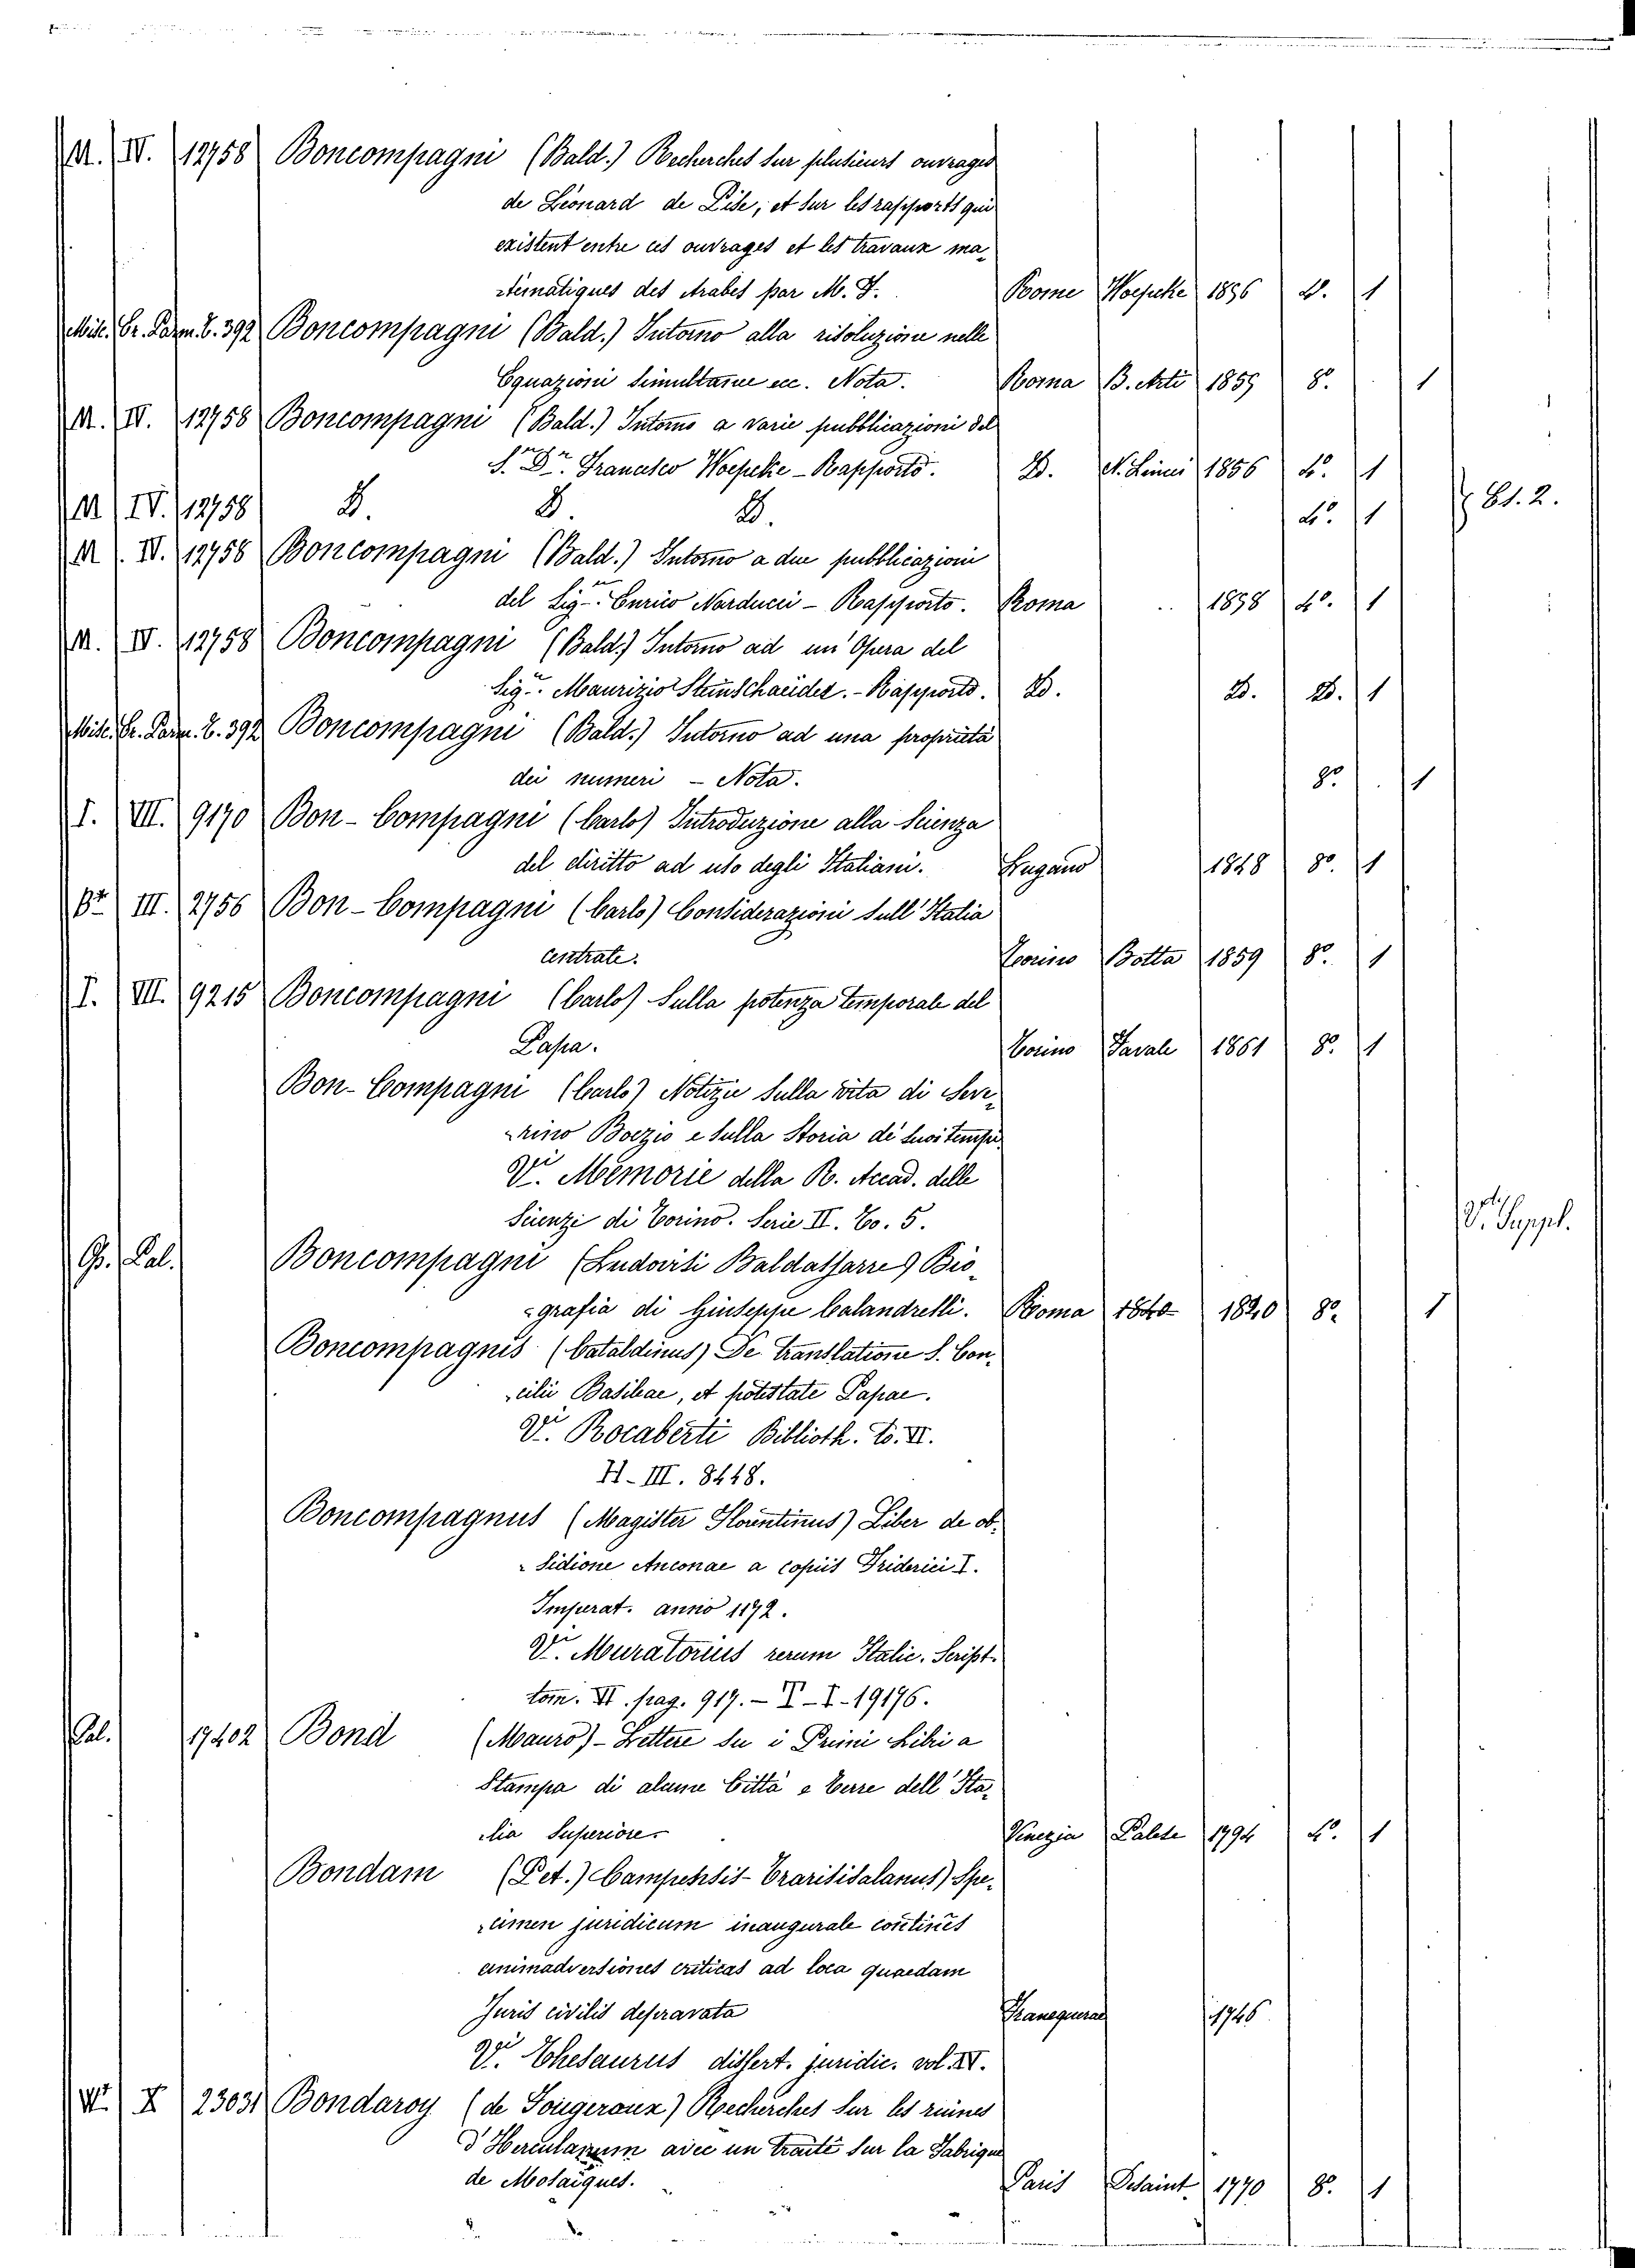 M. IV. 12758 Boncompagni (Bald.) Recherches sur plusieurs ouvrages
de Léonard de Pise, et sur les rapports qui
existent entre ces ouvrages et les travaux ma-
-tématiques des Arabes par M. F. Rome Woepcke 1856 4. 1
Misc. Er. Parm. 8. 392 Boncompagni (Bald.) Intorno alla risoluzione nelle
Equazioni simultanee ecc. Nota. Roma B. Arti 1859 8. 1
M. IV. 12758 Boncompagni (Bald.) Intorno a varie pubblicazioni del
S.r D.r Francesco Woepcke - Rapporto. D. N. Lincei 1856 4.o 1
M IV. 12758 D. D. D. 4.o 1 Es. 2.
M. IV. 12758 Boncompagni (Bald.) Intorno a due pubblicazioni
del Sig.r Enrico Narducci - Rapporto. Roma .. 1858 4.o 1
M. IV. 12758 Boncompagni (Bald.) Intorno ad un' Opera del
Sig.r Maurizio Steinschneider. - Rapporto. D. D. D. 1
Misc. Er. Parm. 8. 392 Boncompagni (Bald.) Intorno ad una proprietà
dei numeri - Nota. 8.o 1
I. VII. 9170 Bon-Compagni (Carlo) Introduzione alla Scienza
del diritto ad uso degli Italiani. Lugano 1848 8.o 1
B.r III. 2756 Bon-Compagni (Carlo) Considerazioni sull' Italia
centrale. Torino Botta 1859 8.o 1
I. VII. 9215 Boncompagni (Carlo) Sulla potenza temporale del
Papa. Torino Favale 1861 8.o 1
Bon-Compagni (Carlo) Notizie sulla vita di Seve-
-rino Boezio e sulla Storia de' suoi tempi
V.i Memorie della R. Accad. delle
Scienze di Torino. Serie II. To. 5.
V.i Suppl.
G. Pal. Boncompagni (Ludovisi Baldassarre) Bio-
-grafia di Giuseppe Calandrelli. Roma 1840 1840 8.o 1
Boncompagnis (Cataldinus) De translatione S. Con-
-cilii Basileae, et potestate Papae.
V.i Rocaberti Biblioth. to. VI.
H - III. 8448.
Boncompagnus (Magister Florentinus) Liber de ob-
-sidione Anconae a copiis Friderici I.
Imperat. anno 1172.
V.i Muratorius rerum Italic. Script.
tom. VI. pag. 919. - T - I - 19176.
Pal. 17402 Bond (Mauro) - Lettere su i Primi Libri a
Stampa di alcune Città e Terre dell' Ita-
-lia Superiore. Venezia Palese 1794 4.o 1
Bondam (Pet.) Campensis-Transisalanus) Spe-
-cimen juridicum inaugurale continens
animadversiones criticas ad loca quaedam
Juris civilis depravata Franequerae 1746
V.i Thesaurus dissert. juridic. vol. IV.
X 23031 Bondaroy (de Fougeroux) Recherches sur les ruines
d'Herculanum avec un traité sur la Fabrique
de Mosaïques. Paris Desaint. 1770 8.o 1